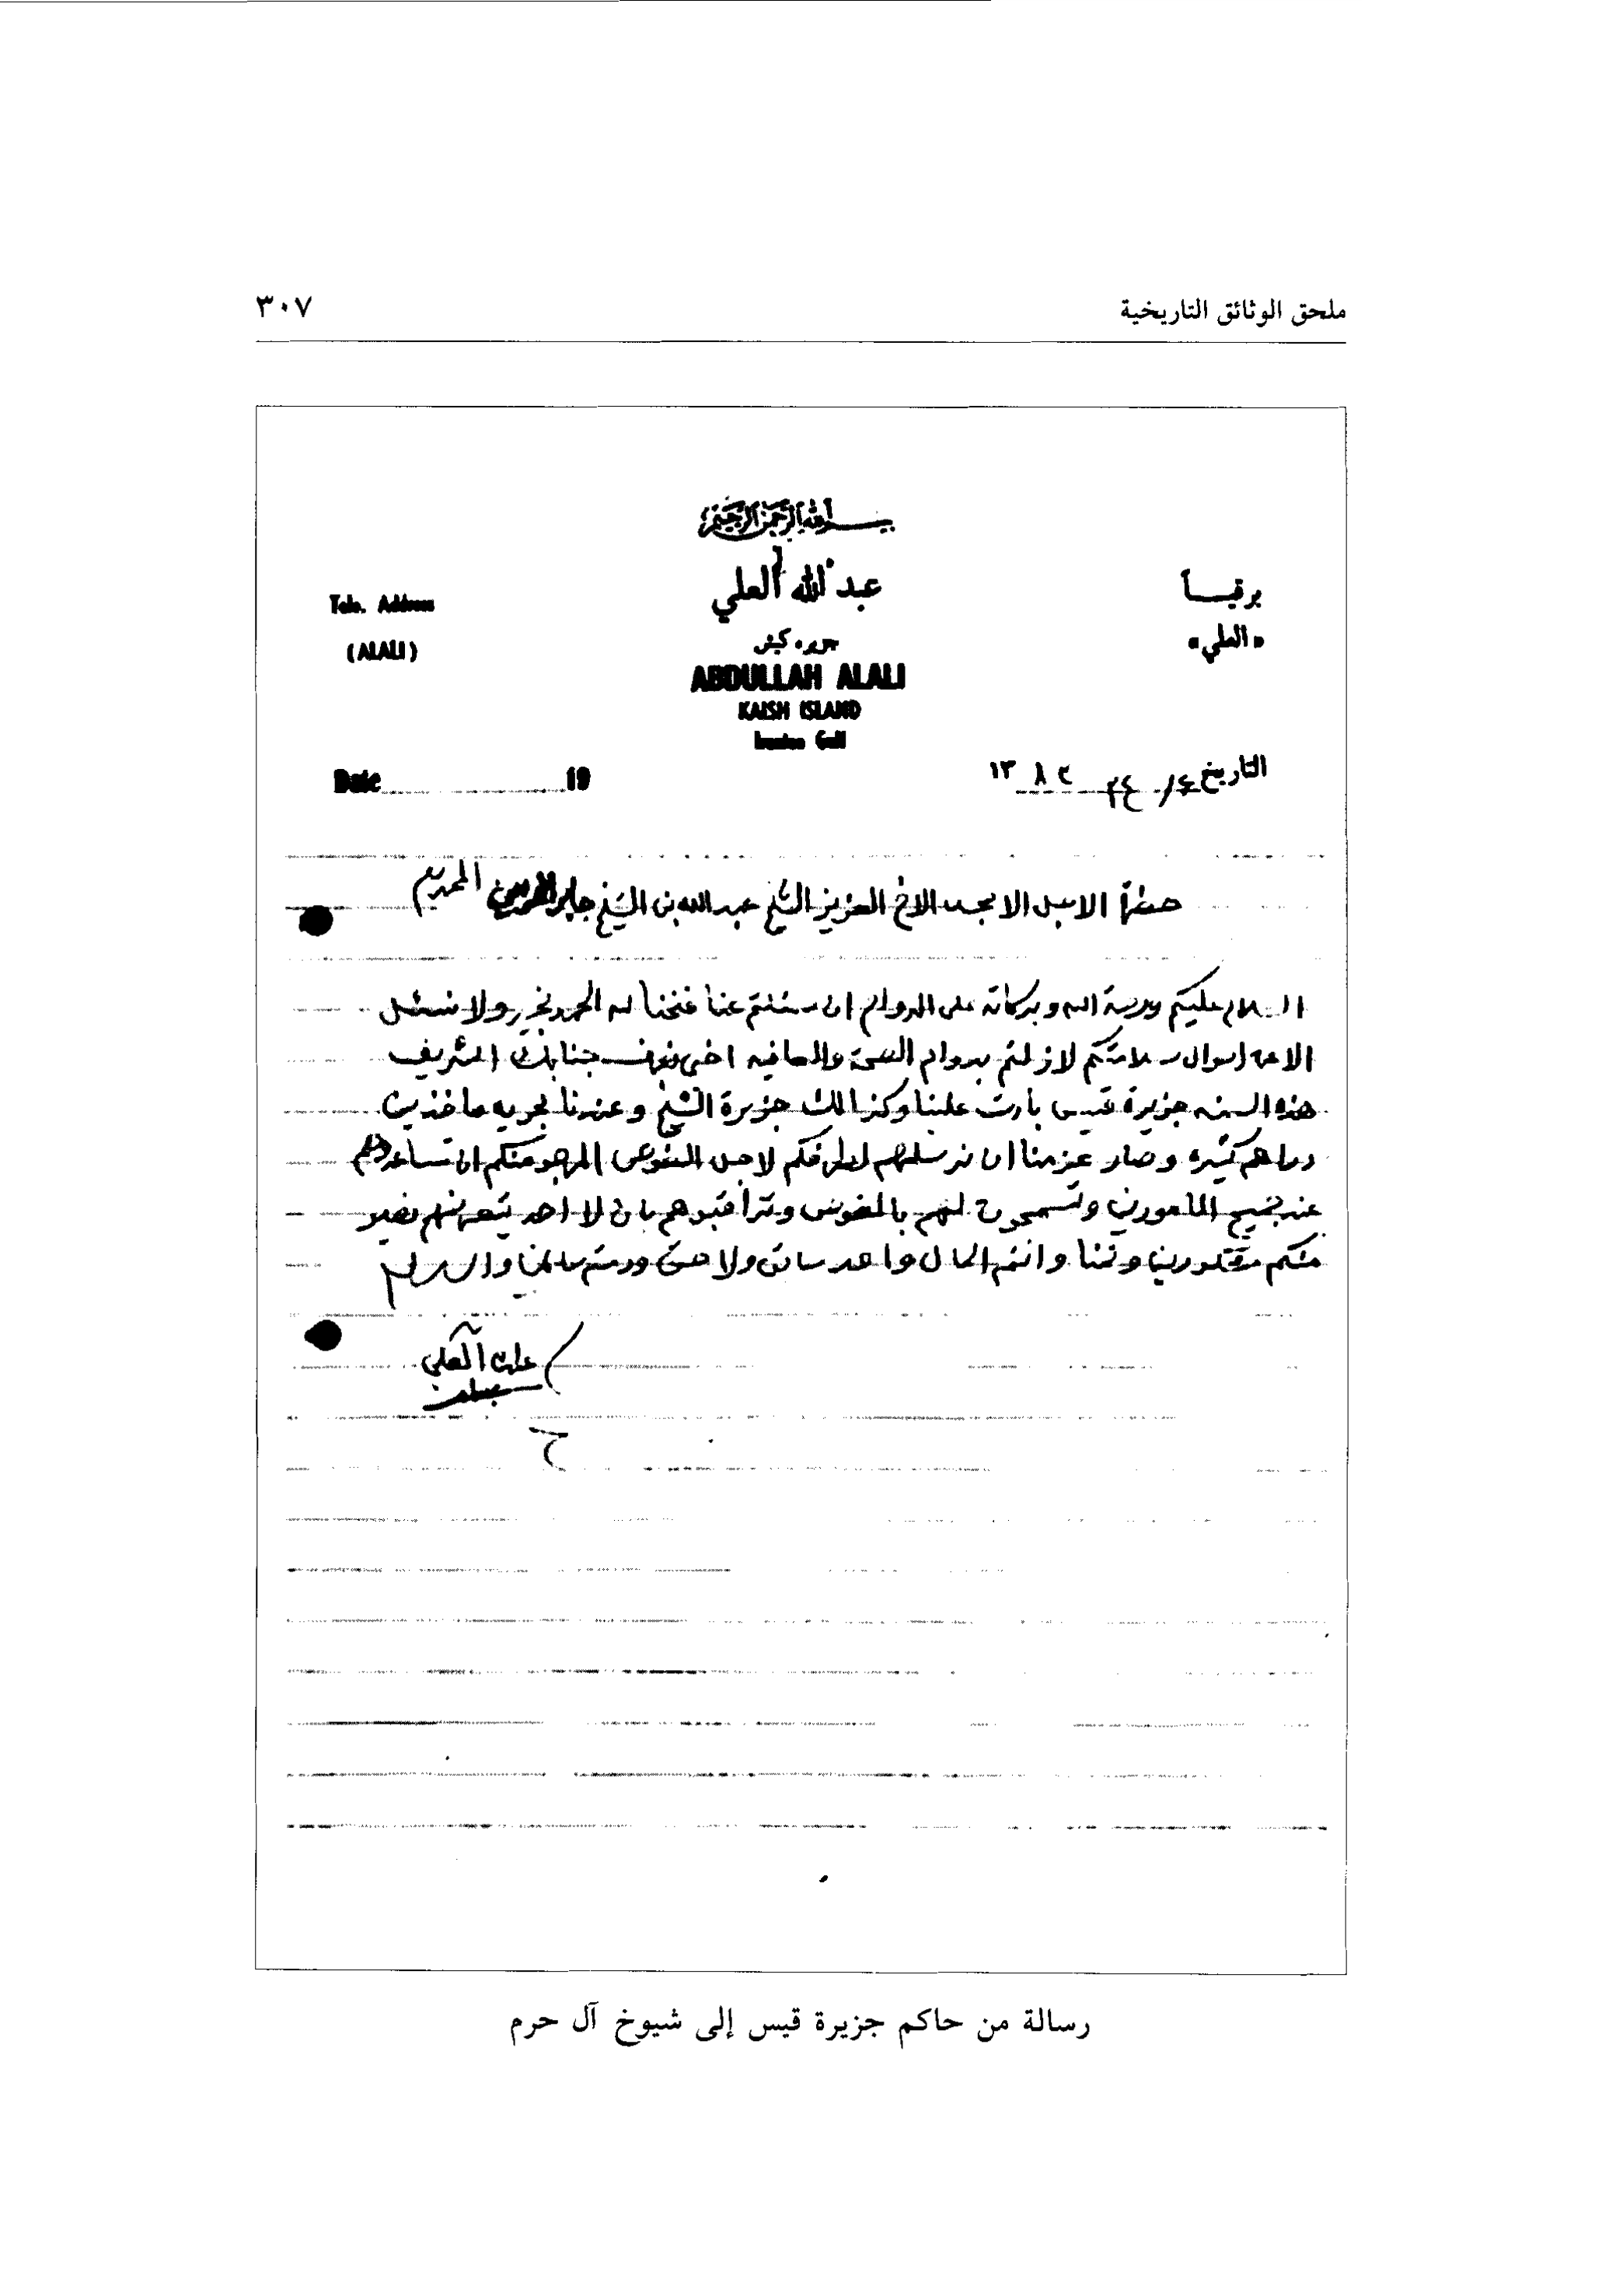 ملحق الوثائق التاريخية ٣٠٧
بسم الله الرحمن الرحيم
برقيـــاً عبد الله العلي Tele. Address
«العلي» جزيره كيش (ALALI)
ABDULLAH ALALI
KAISH ISLAND
Iranian Gulf
التاريخ ٤/ ٢٤ ١٣٨٢ Date 19
حضرة الاجل الامجد الاخ العزيز الشيخ عبدالله بن الشيخ جابر المحترم
السلام عليكم ورحمة الله وبركاته على الدوام ان سئلتم عنا فنحنا لله الحمد بخير ولا نسئل
الا عن احوال سلامتكم لازلتم بدوام الصحة والعافيه اخي نعرف جنابك الشريف
هذه السنه جزيرة قيس بارت علينا وكذالك جزيرة الشيخ وعندنا بحريه ماخذين
دراهم كثيره وصار عزمنا ان نرسلهم لطرفكم لاجل الغوص المرجو منكم ان تساعدوهم
عند جميع المامورين وتسمحون لهم بالغوص وتراقبوهم بان لا احد يتعرضهم نصير
منكم متشكورين ونحنا وانتم الحال واحد سابق ولاحق ودمتم سالمين والسلام
علي العلي
رسالة من حاكم جزيرة قيس إلى شيوخ آل حرم